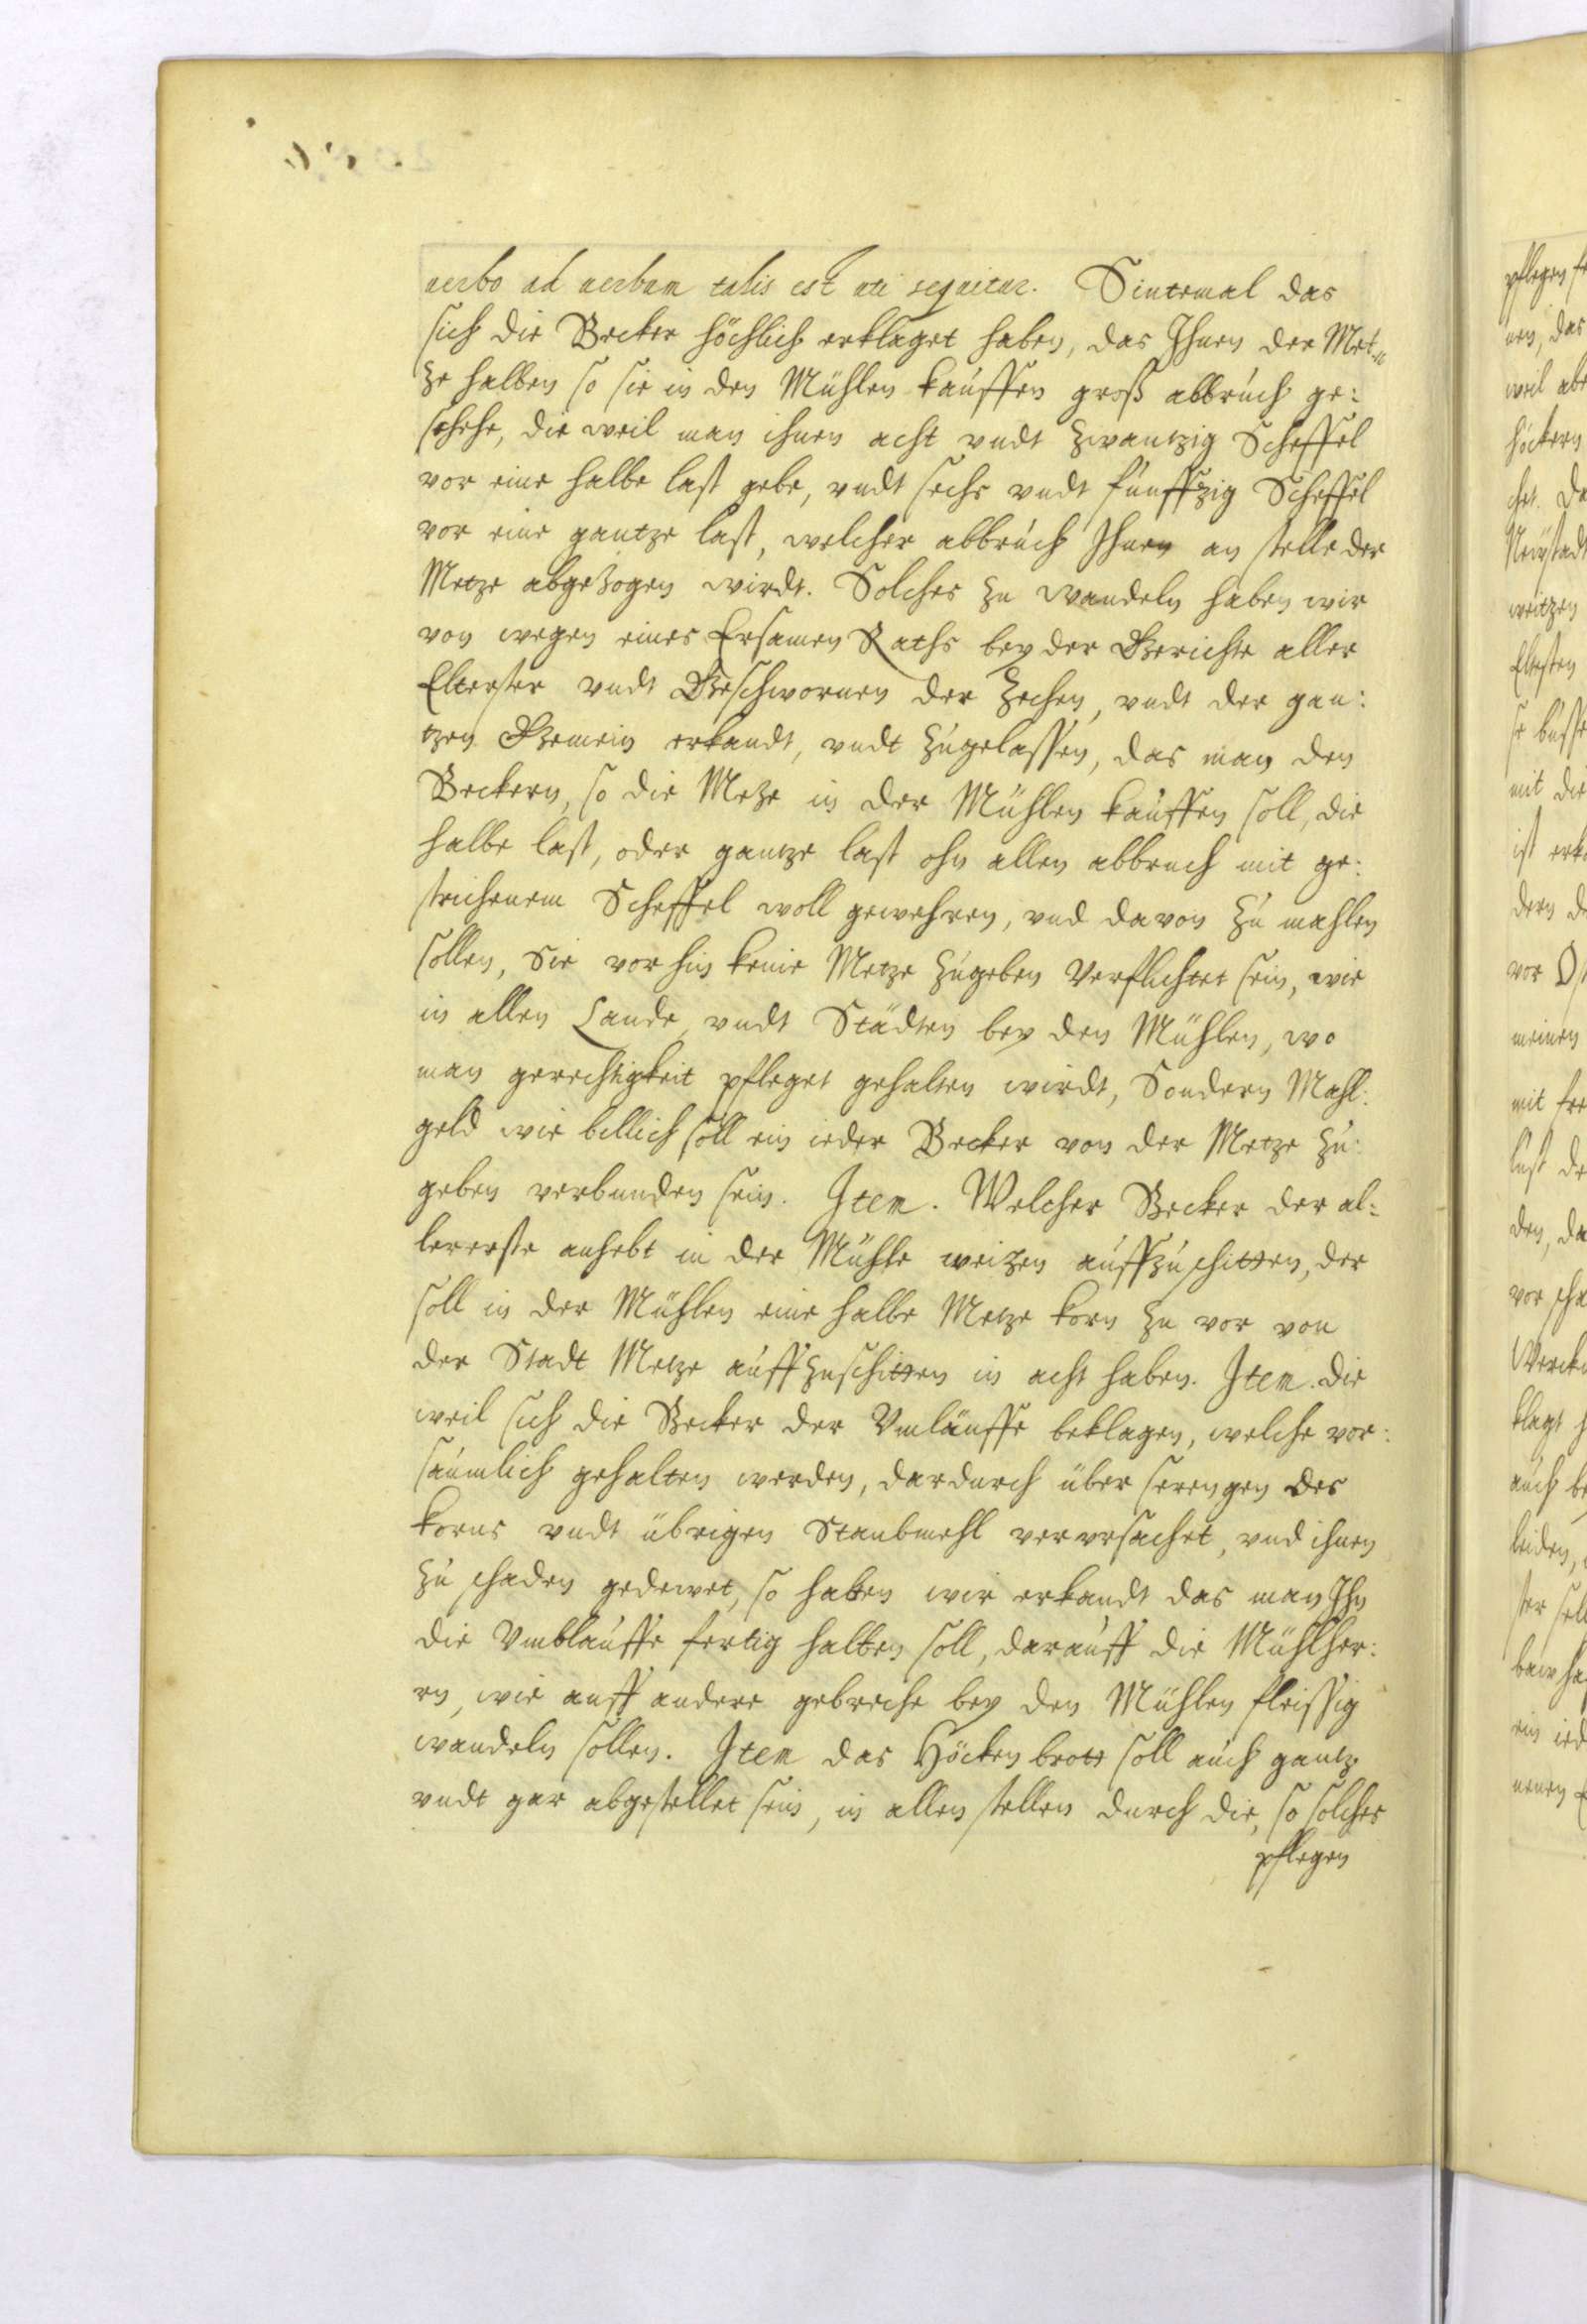 uerbo ad uerbum talis est uti sequitur. Sintemal das
sich die Becker höchlich erklaget haben, das Ihnen der Met-
ze halben so sie in den Mühlen kauffen groß abbruch ge:
schehe, die weil man ihnen acht vndt zwantzig Scheffel
vor eine halbe last gebe, vndt sechs vndt funffzig Scheffel
vor eine gantze last, welcher abbruch Ihnen an stelle der
Metze abgezogen wirdt. Solches zu wandeln haben wir
von wegen eines Ersamen Raths bey der Gerichte aller
Elterster vndt Geschwornen der Zechen, vndt der gan:
tzen Gemein erkandt, vndt zugelassen, das man den
Beckern, so die Metze in der Mühlen kauffen soll, die
halbe last, oder gantze last ohn allen abbruch mit ge:
strichenem Scheffel woll gewehren, vnd davon zu mahlen
sollen, Sie vor hin keine Metze zugeben Verflichtet sein, wie
in allen Lande vndt Städten bey den Mühlen, wo
man gerechtigkeit pfleget gehalten wirdt, Sondern Mahl:
geld wie billich soll ein ieder Becker von der Metze zu:
geben verbunden sein. Item. Welcher Becker der al:
lererste anhebt in der Mühle weitzen auffzuschitten, der
soll in der Mühlen eine halbe Metze korn zu vor von
der Stadt Metze auffzuschitten in acht haben. Item. die
weil sich die Becker der Vmläuffe beklagen, welche vor:
säumlich gehalten werden, dardurch über serengen des
korns vndt übrigen Staubmehl vervrsachet, vnd ihnen
zu schaden gedewet, so haben wir erkandt das man Ihn
die Vmblauffe fertig halten soll, darauff die Mühlher:
rn, wie auff andere gebreche bey den Mühlen fleissig
wandeln sollen. Item das Höcken brott soll auch gantz
vndt gar abgestellet sein, in allen stellen durch die, so solches
pflegen